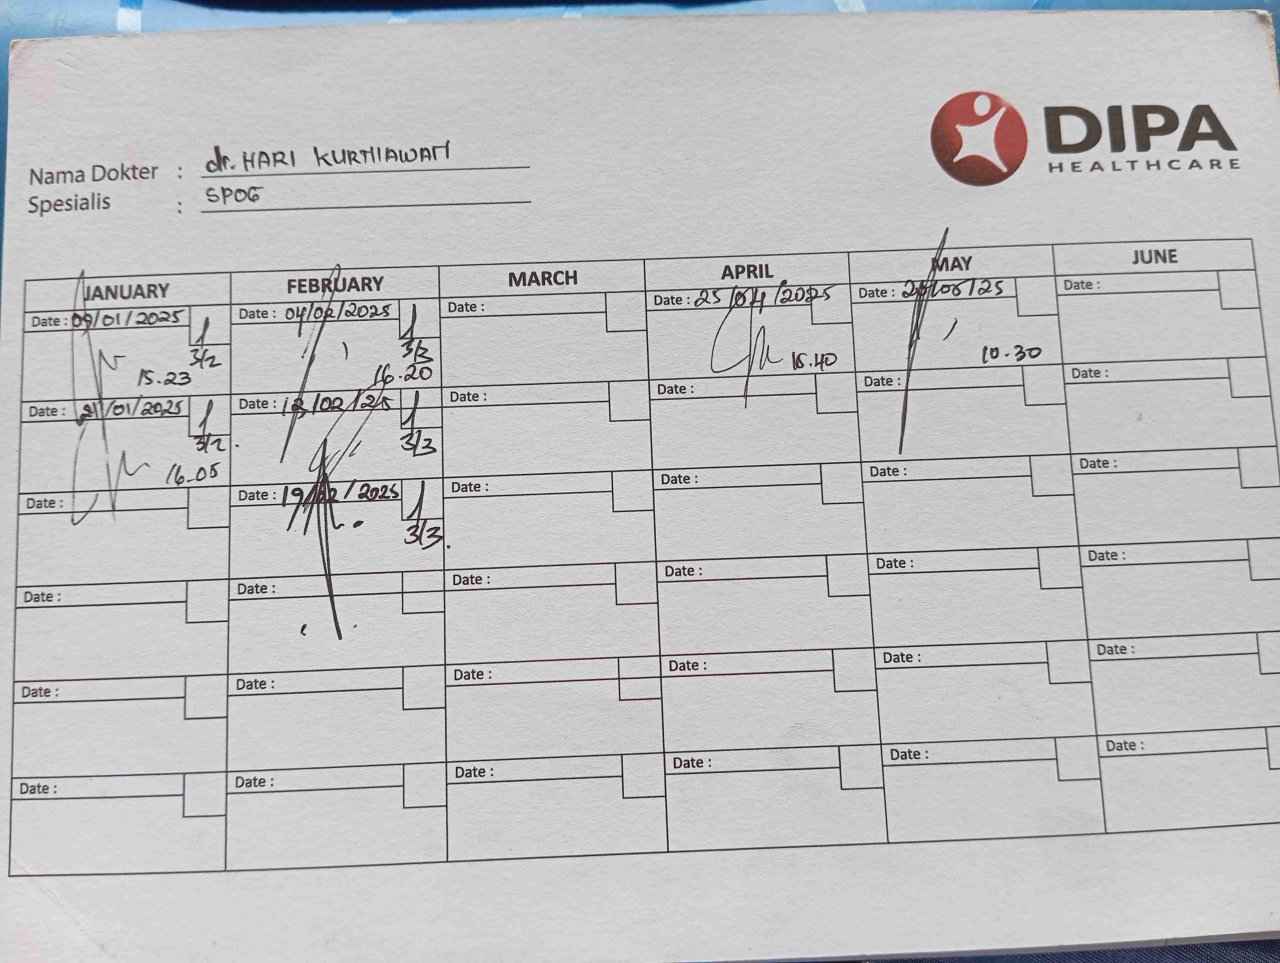 DIPA
HEALTHCARE
Nama Dokter : dr. HARI KURNIAWAN
Spesialis : SPOG
JANUARY FEBRUARY MARCH APRIL MAY JUNE
Date : 09/01/2025 1 Date : 04/02/2025 1 Date : Date : 25/04/2025 Date : /05/25 Date :
3/2 3/3
15.23 16.20 15.40 10.30
Date : 21/01/2025 1 Date : 13/02/25 1 Date : Date : Date : Date :
3/2. 3/3
16-05
Date : Date : 19/02/2025 1 Date : Date : Date : Date :
3/3.
Date : Date : Date : Date : Date : Date :
Date : Date : Date : Date : Date : Date :
Date : Date : Date : Date : Date : Date :